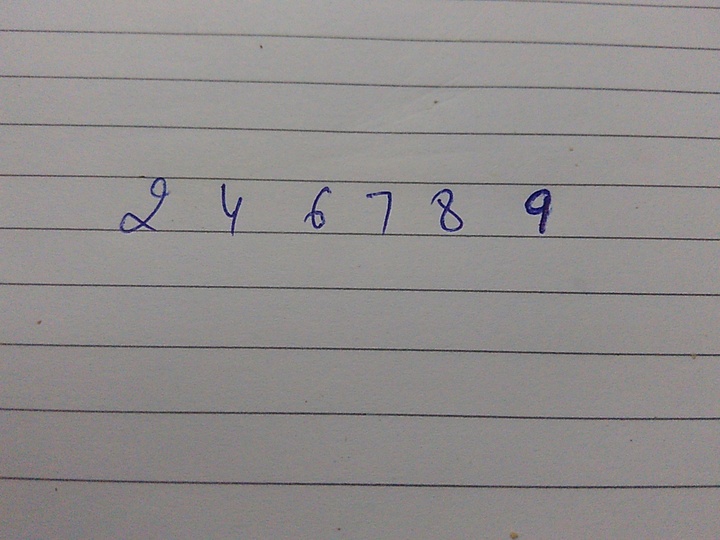 2 4 6 7 8 9